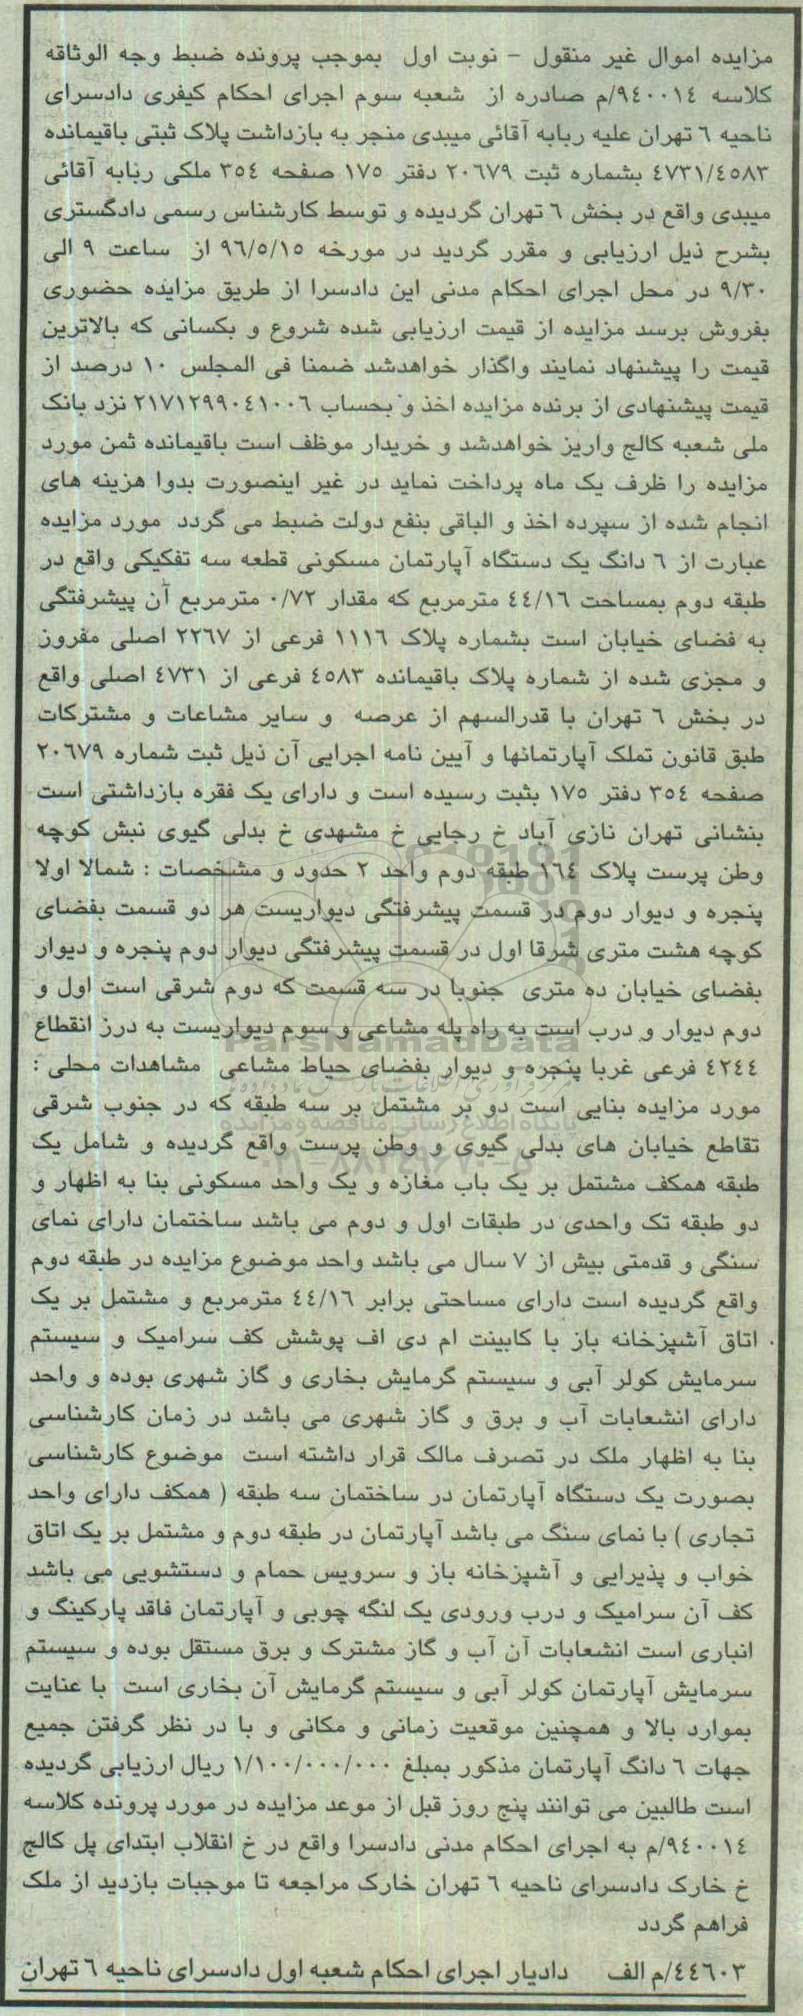 مزایده اموال غیر منقول - نوبت اول بموجب پرونده ضبط وجه الوثاقه
کلاسه ٩٤٠٠١٤/م صادره از شعبه سوم اجرای احکام کیفری دادسرای
ناحیه ٦ تهران علیه ربابه آقائی میبدی منجر به بازداشت پلاک ثبتی باقیمانده
٤٧٣١/٤٥٨٣ بشماره ثبت ٢٠٦٧٩ دفتر ١٧٥ صفحه ٣٥٤ ملکی ربابه آقائی
میبدی واقع در بخش ٦ تهران گردیده و توسط کارشناس رسمی دادگستری
بشرح ذیل ارزیابی و مقرر گردید در مورخه ٩٦/٥/١٥ از ساعت ٩ الی
٩/٣٠ در محل اجرای احکام مدنی این دادسرا از طریق مزایده حضوری
بفروش برسد مزایده از قیمت ارزیابی شده شروع و بکسانی که بالاترین
قیمت را پیشنهاد نمایند واگذار خواهدشد ضمنا فی المجلس ١٠ درصد از
قیمت پیشنهادی از برنده مزایده اخذ و بحساب ٢١٧١٢٩٩٠٤١٠٠٦ نزد بانک
ملی شعبه کالج واریز خواهدشد و خریدار موظف است باقیمانده ثمن مورد
مزایده را ظرف یک ماه پرداخت نماید در غیر اینصورت بدوا هزینه های
انجام شده از سپرده اخذ و الباقی بنفع دولت ضبط می گردد مورد مزایده
عبارت از ٦ دانگ یک دستگاه آپارتمان مسکونی قطعه سه تفکیکی واقع در
طبقه دوم بمساحت ٤٤/١٦ مترمربع که مقدار ٠/٧٢ مترمربع آن پیشرفتگی
به فضای خیابان است بشماره پلاک ١١١٦ فرعی از ٢٢٦٧ اصلی مفروز
و مجزی شده از شماره پلاک باقیمانده ٤٥٨٣ فرعی از ٤٧٣١ اصلی واقع
در بخش ٦ تهران با قدرالسهم از عرصه و سایر مشاعات و مشترکات
طبق قانون تملک آپارتمانها و آیین نامه اجرایی آن ذیل ثبت شماره ٢٠٦٧٩
صفحه ٣٥٤ دفتر ١٧٥ بثبت رسیده است و دارای یک فقره بازداشتی است
بنشانی تهران نازی آباد خ رجایی خ مشهدی خ بدلی گیوی نبش کوچه
وطن پرست پلاک ١٦٤ طبقه دوم واحد ٢ حدود و مشخصات : شمالا اولا
پنجره و دیوار دوم در قسمت پیشرفتگی دیواریست هر دو قسمت بفضای
کوچه هشت متری شرقا اول در قسمت پیشرفتگی دیوار دوم پنجره و دیوار
بفضای خیابان ده متری جنوبا در سه قسمت که دوم شرقی است اول و
دوم دیوار و درب است به راه پله مشاعی و سوم دیواریست به درز انقطاع
٤٢٤٤ فرعی غربا پنجره و دیوار بفضای حیاط مشاعی مشاهدات محلی :
مورد مزایده بنایی است دو بر مشتمل بر سه طبقه که در جنوب شرقی
تقاطع خیابان های بدلی گیوی و وطن پرست واقع گردیده و شامل یک
طبقه همکف مشتمل بر یک باب مغازه و یک واحد مسکونی بنا به اظهار و
دو طبقه تک واحدی در طبقات اول و دوم می باشد ساختمان دارای نمای
سنگی و قدمتی بیش از ٧ سال می باشد واحد موضوع مزایده در طبقه دوم
واقع گردیده است دارای مساحتی برابر ٤٤/١٦ مترمربع و مشتمل بر یک
اتاق آشپزخانه باز با کابینت ام دی اف پوشش کف سرامیک و سیستم
سرمایش کولر آبی و سیستم گرمایش بخاری و گاز شهری بوده و واحد
دارای انشعابات آب و برق و گاز شهری می باشد در زمان کارشناسی
بنا به اظهار ملک در تصرف مالک قرار داشته است موضوع کارشناسی
بصورت یک دستگاه آپارتمان در ساختمان سه طبقه ( همکف دارای واحد
تجاری ) با نمای سنگ می باشد آپارتمان در طبقه دوم و مشتمل بر یک اتاق
خواب و پذیرایی و آشپزخانه باز و سرویس حمام و دستشویی می باشد
کف آن سرامیک و درب ورودی یک لنگه چوبی و آپارتمان فاقد پارکینگ و
انباری است انشعابات آن آب و گاز مشترک و برق مستقل بوده و سیستم
سرمایش آپارتمان کولر آبی و سیستم گرمایش آن بخاری است با عنایت
بموارد بالا و همچنین موقعیت زمانی و مکانی و با در نظر گرفتن جمیع
جهات ٦ دانگ آپارتمان مذکور بمبلغ ١/١٠٠/٠٠٠/٠٠٠ ریال ارزیابی گردیده
است طالبین می توانند پنج روز قبل از موعد مزایده در مورد پرونده کلاسه
٩٤٠٠١٤/م به اجرای احکام مدنی دادسرا واقع در خ انقلاب ابتدای پل کالج
خ خارک دادسرای ناحیه ٦ تهران خارک مراجعه تا موجبات بازدید از ملک
فراهم گردد
٤٤٦٠٣/م الف دادیار اجرای احکام شعبه اول دادسرای ناحیه ٦ تهران
ParsNamadData
پایگاه اطلاع رسانی مناقصه و مزایده